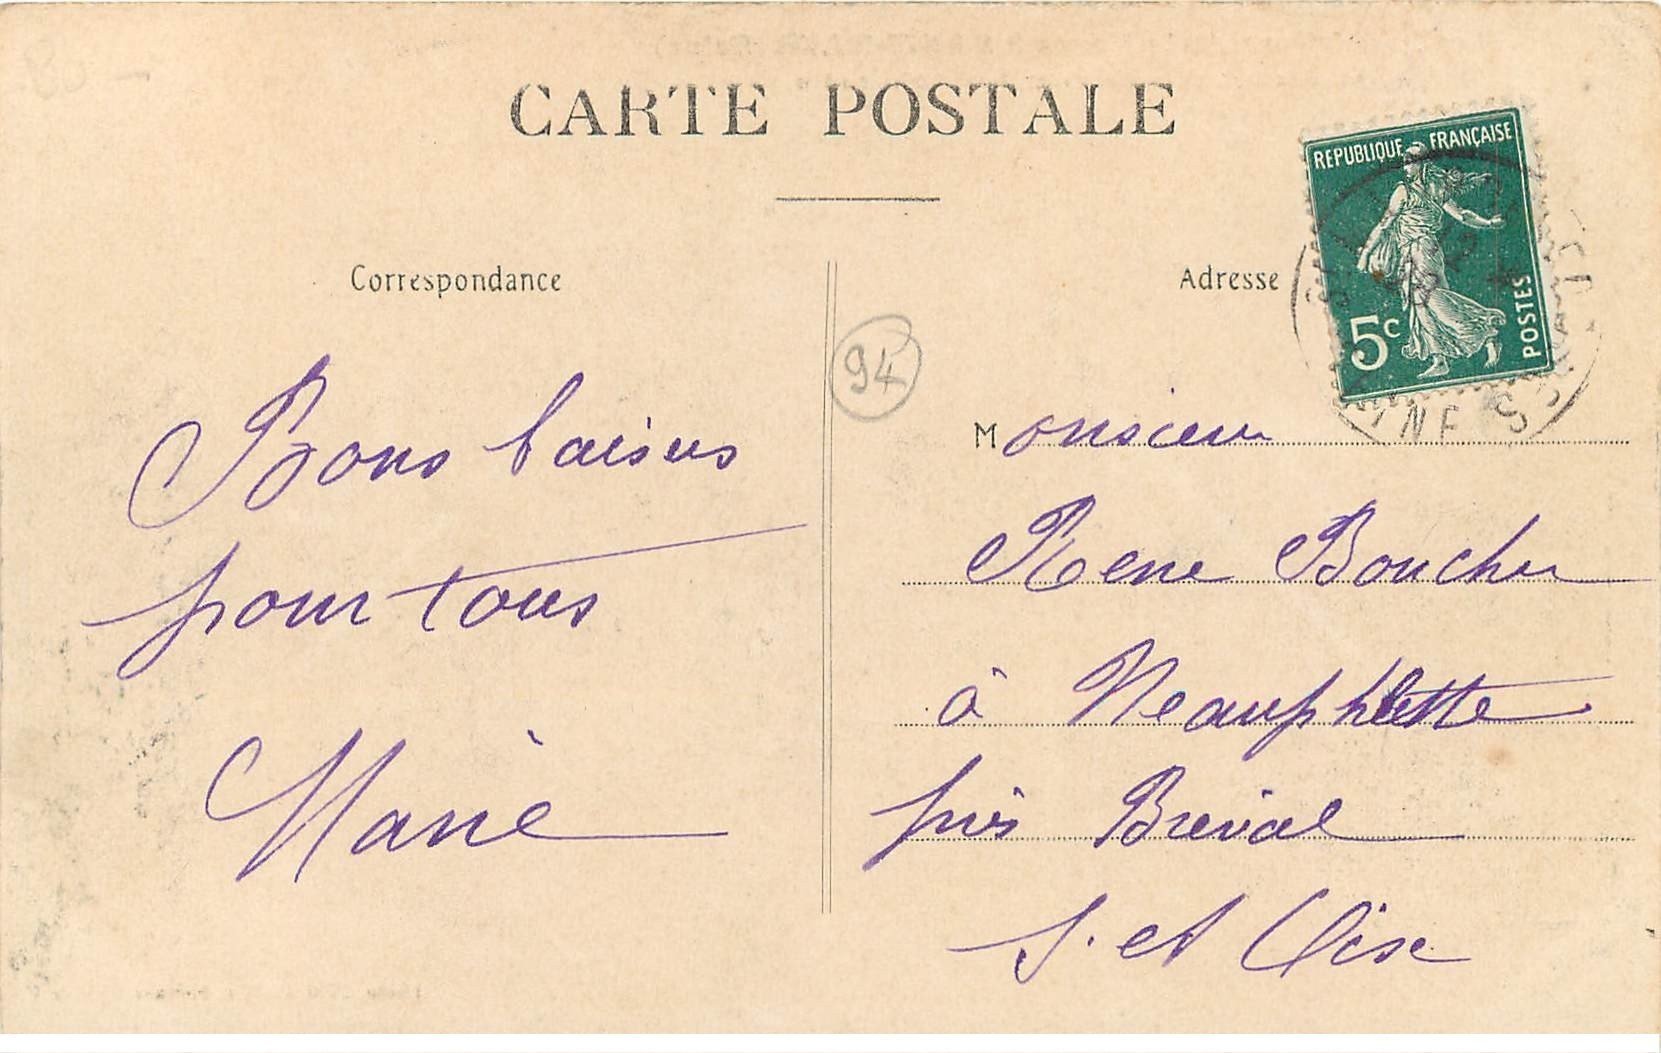 CARTE POSTALE
Correspondance
Adresse
REPUBLIQUE FRANÇAISE
5c
POSTES
94
Bons baisers
pour tous
Marie
Monsieur
Rene Boucher
à Neauphlette
près Breval
S. et Oise